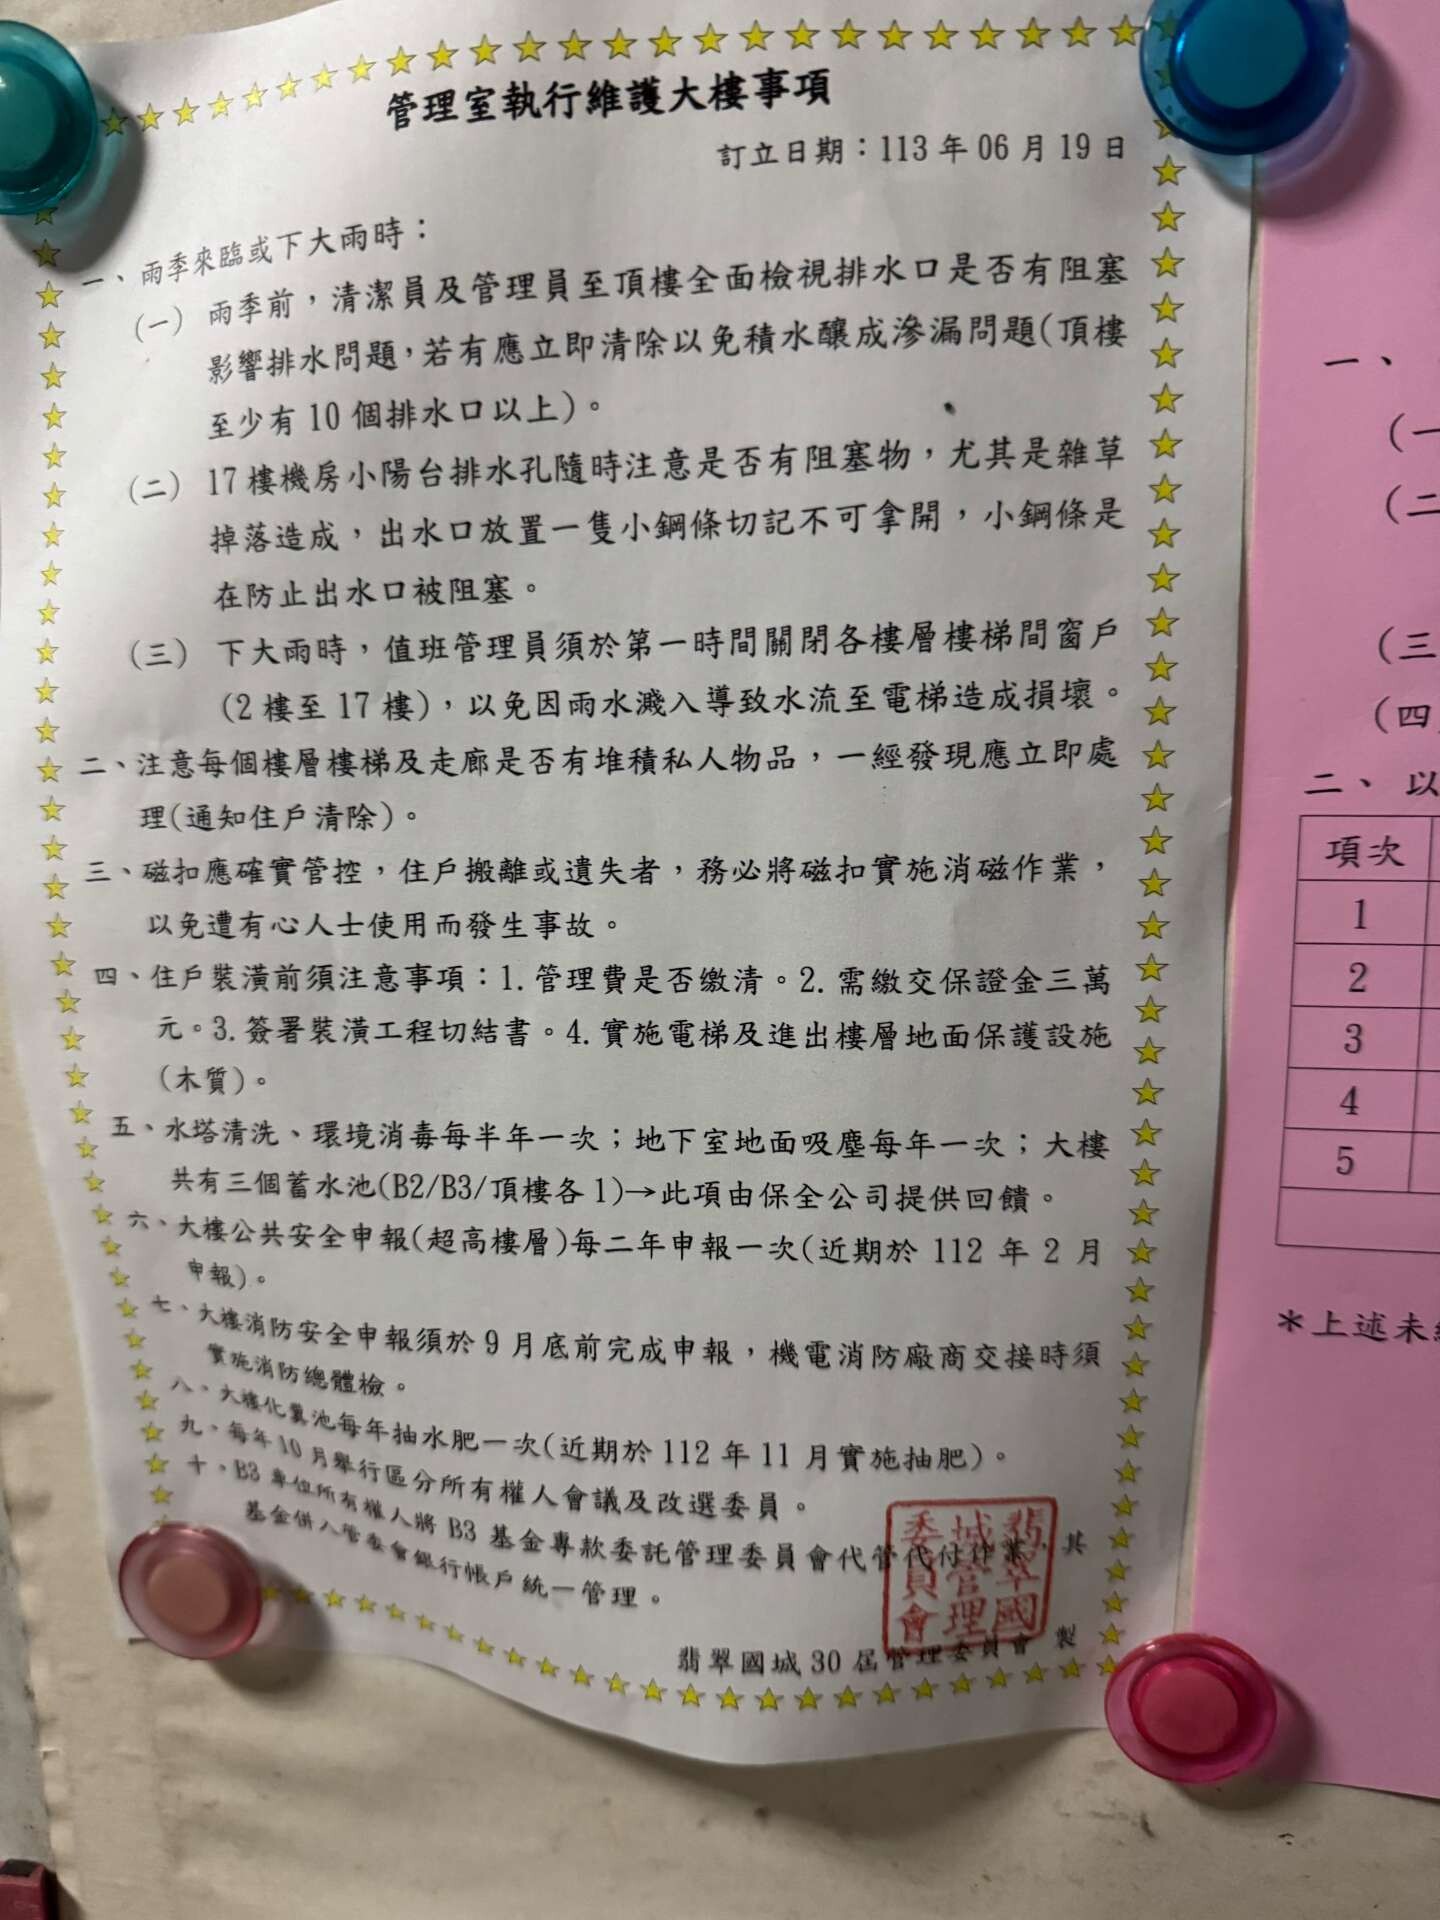 管理室執行維護大樓事項
訂立日期：113年06月19日
一、雨季來臨或下大雨時：
(一) 雨季前，清潔員及管理員至頂樓全面檢視排水口是否有阻塞
影響排水問題，若有應立即清除以免積水釀成滲漏問題(頂樓
至少有10個排水口以上)。
(二) 17樓機房小陽台排水孔隨時注意是否有阻塞物，尤其是雜草
掉落造成，出水口放置一隻小鋼條切記不可拿開，小鋼條是
在防止出水口被阻塞。
(三) 下大雨時，值班管理員須於第一時間關閉各樓層樓梯間窗戶
(2樓至17樓)，以免因雨水濺入導致水流至電梯造成損壞。
二、注意每個樓層樓梯及走廊是否有堆積私人物品，一經發現應立即處
理(通知住戶清除)。
三、磁扣應確實管控，住戶搬離或遺失者，務必將磁扣實施消磁作業，
以免遭有心人士使用而發生事故。
四、住戶裝潢前須注意事項：1.管理費是否繳清。2.需繳交保證金三萬
元。3.簽署裝潢工程切結書。4.實施電梯及進出樓層地面保護設施
(木質)。
五、水塔清洗、環境消毒每半年一次；地下室地面吸塵每年一次；大樓
共有三個蓄水池(B2/B3/頂樓各1)→此項由保全公司提供回饋。
六、大樓公共安全申報(超高樓層)每二年申報一次(近期於112年2月
申報)。
七、大樓消防安全申報須於9月底前完成申報，機電消防廠商交接時須
實施消防總體檢。
八、大樓化糞池每年抽水肥一次(近期於112年11月實施抽肥)。
九、每年10月舉行區分所有權人會議及改選委員。
十、B3車位所有權人將B3基金專款委託管理委員會代管代付作業，其
基金併入管委會銀行帳戶統一管理。
翡翠國城30屆管理委員會 製
翡翠國城管理委員會
一、
(一
(二
(三
(四
二、以
項次
1
2
3
4
5
＊上述未